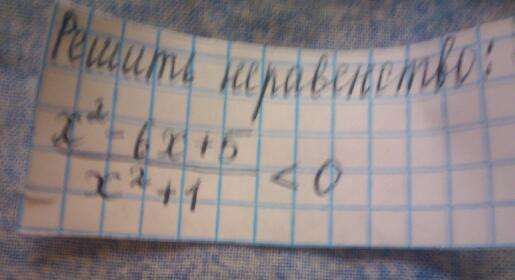 Решить неравенство:
x² - 6x + 5
x² + 1 < 0